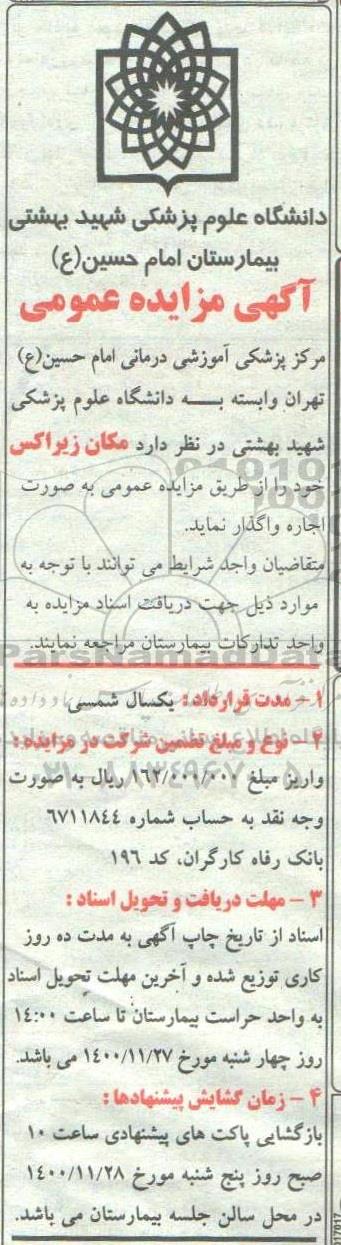 دانشگاه علوم پزشکی شهید بهشتی
بیمارستان امام حسین(ع)
آگهی مزایده عمومی
مرکز پزشکی آموزشی درمانی امام حسین(ع)
تهران وابسته بـــــه دانشگاه علوم پزشکی
شهید بهشتی در نظر دارد مکان زیراکس
خود را از طریق مزایده عمومی به صورت
اجاره واگذار نماید.
متقاضیان واجد شرایط می توانند با توجه به
موارد ذیل جهت دریافت اسناد مزایده به
واحد تدارکات بیمارستان مراجعه نمایند.
ParsNamadData
۱ – مدت قرارداد : یکسال شمسی
۲ – نوع و مبلغ تضمین شرکت در مزایده :
واریز مبلغ ۱۶۲/۰۰۰/۰۰۰ ریال به صورت
وجه نقد به حساب شماره ۶۷۱۱۸۴۴
۰۲۱-۸۸۳۴۹۶۷۰-۵
بانک رفاه کارگران، کد ۱۹۶
۳ – مهلت دریافت و تحویل اسناد :
اسناد از تاریخ چاپ آگهی به مدت ده روز
کاری توزیع شده و آخرین مهلت تحویل اسناد
به واحد حراست بیمارستان تا ساعت ۱۴:۰۰
روز چهار شنبه مورخ ۱۴۰۰/۱۱/۲۷ می باشد.
۴ – زمان گشایش پیشنهادها :
بازگشایی پاکت های پیشنهادی ساعت ۱۰
صبح روز پنج شنبه مورخ ۱۴۰۰/۱۱/۲۸
در محل سالن جلسه بیمارستان می باشد.